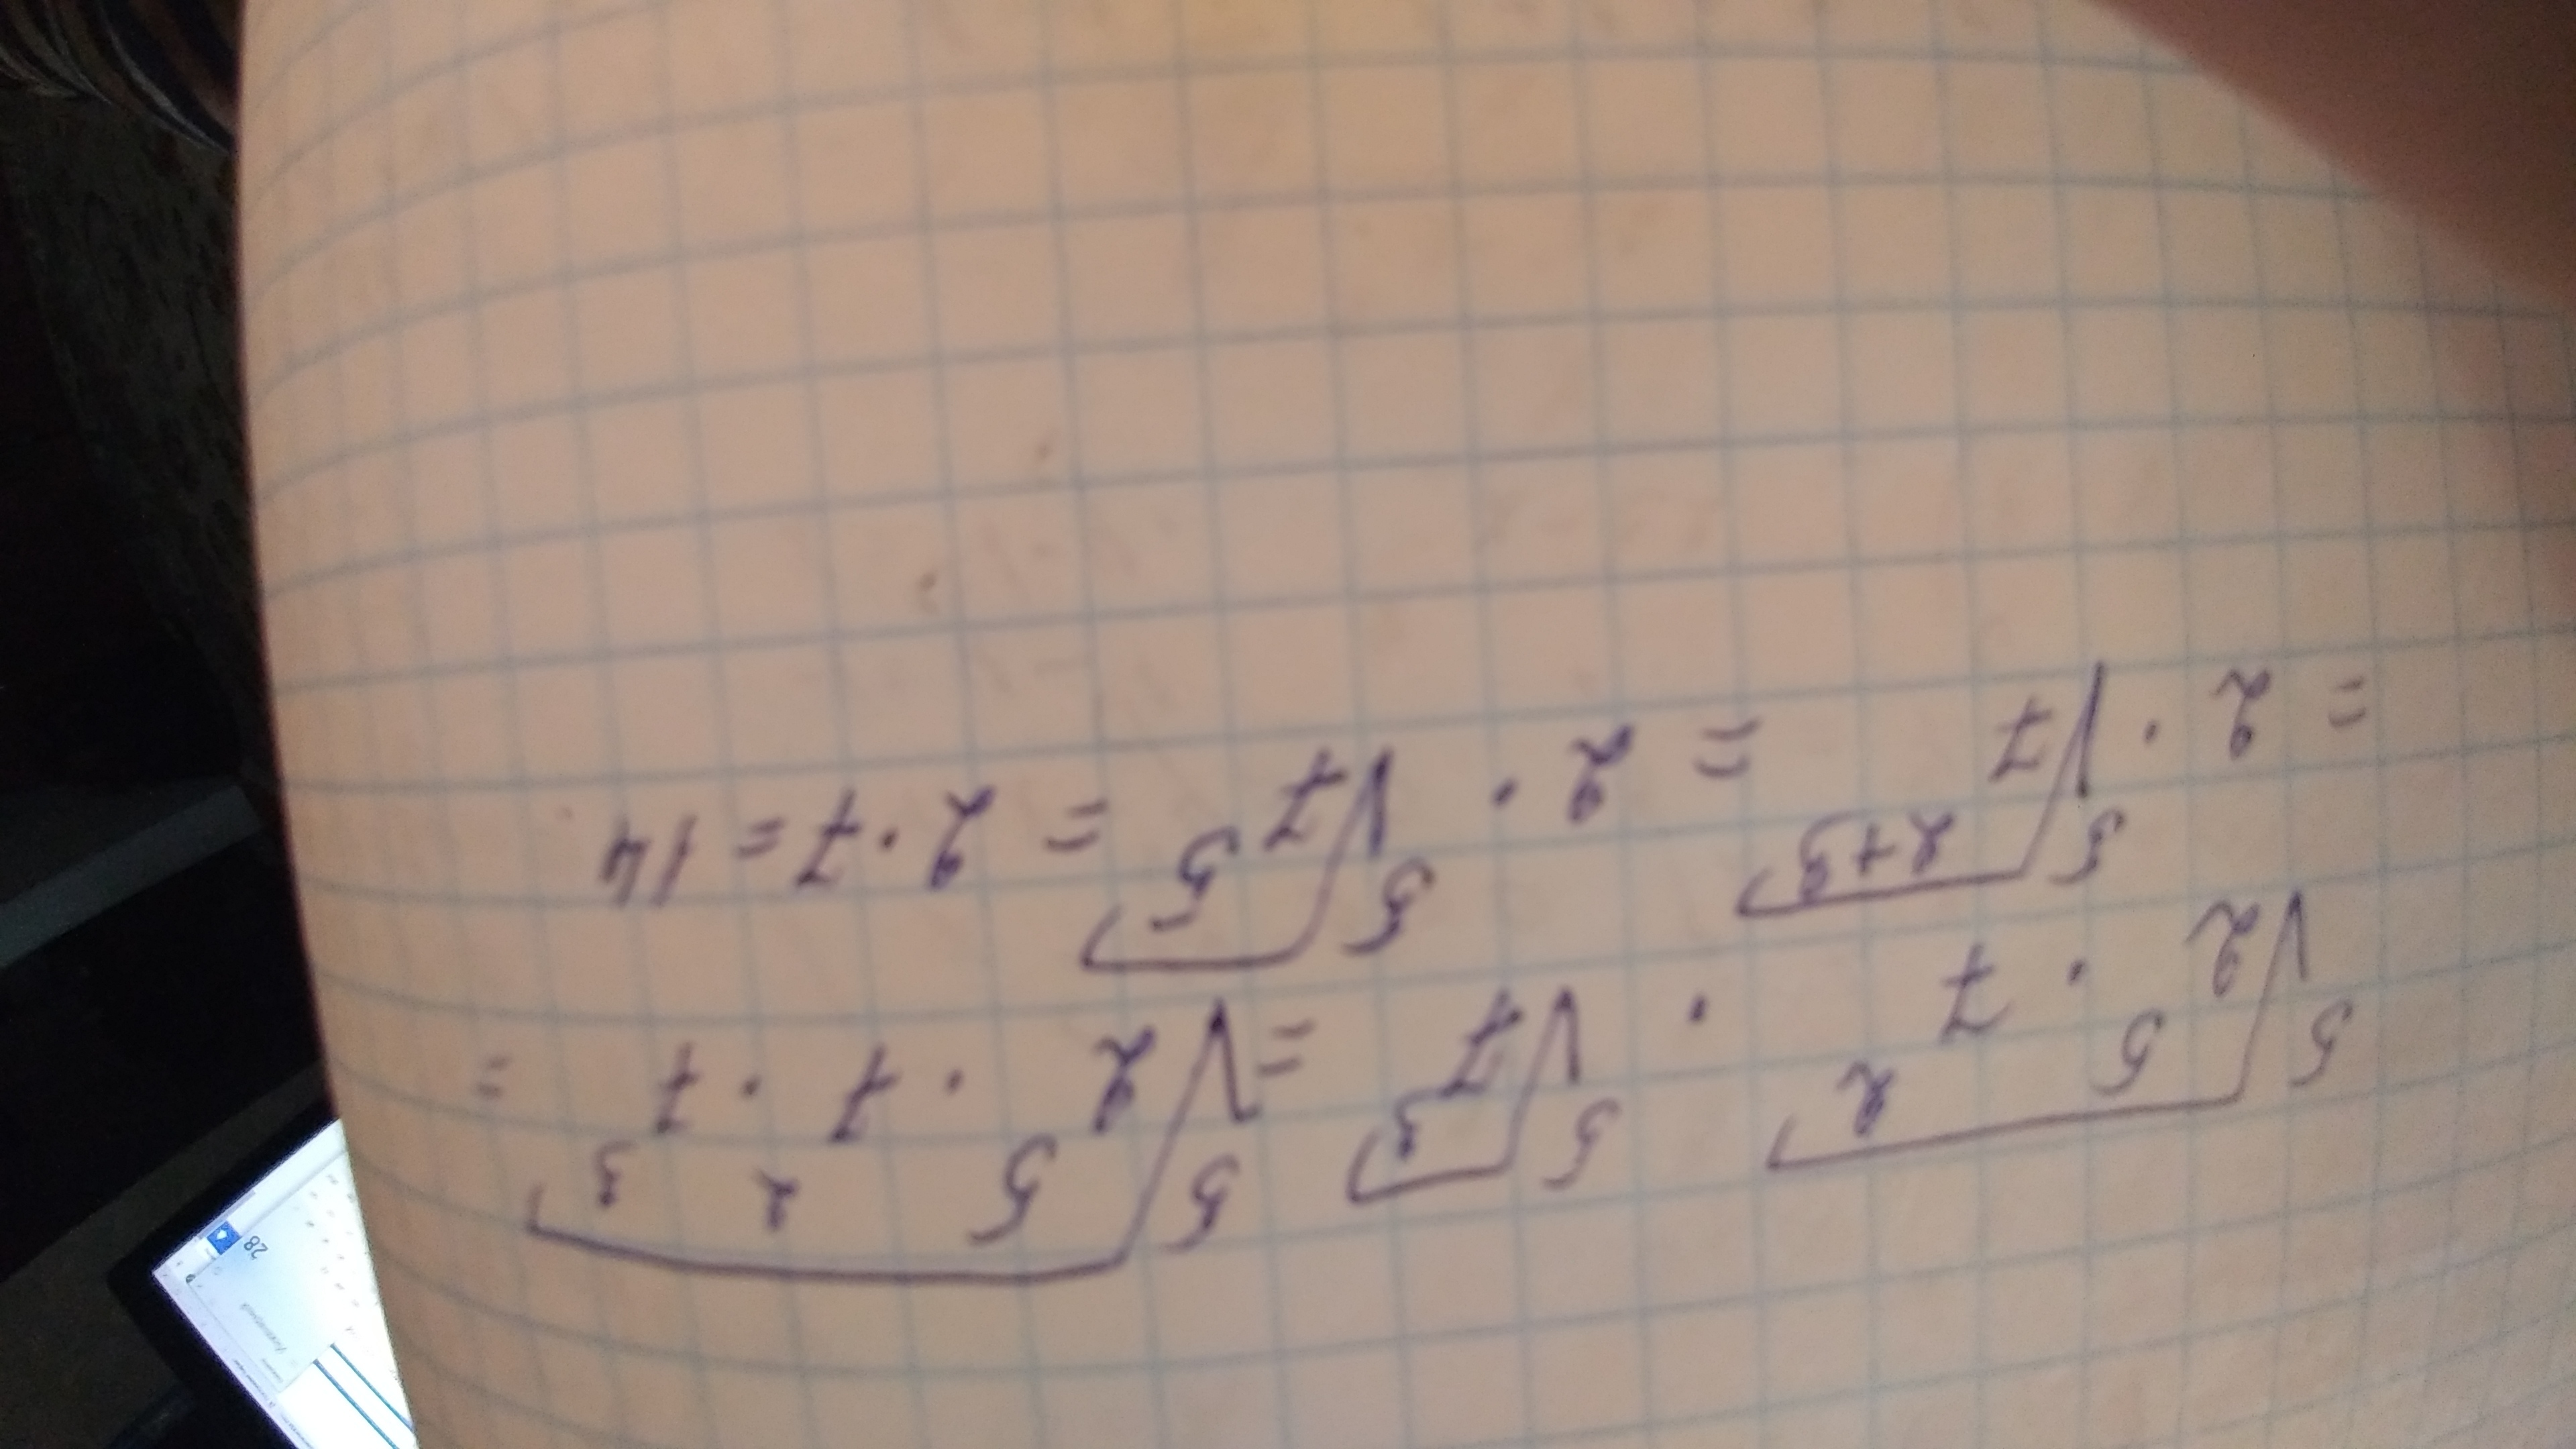 ⁵√(2⁵ · 7²) · ⁵√(7³) = ⁵√(2⁵ · 7² · 7³) =
= 2 · ⁵√(7²⁺³) = 2 · ⁵√(7⁵) = 2 · 7 = 14
28